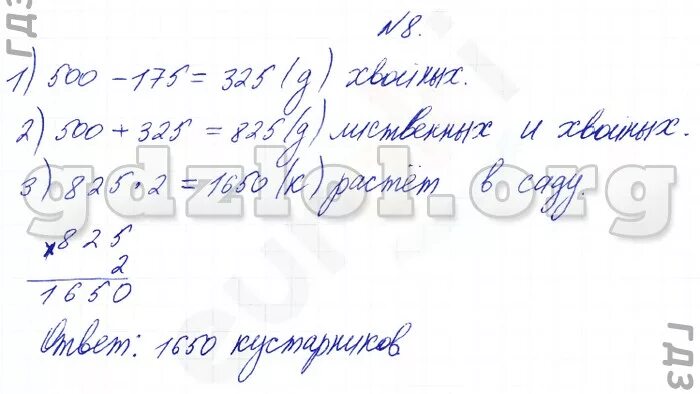 ГДЗ
N8.
1) 500 - 175 = 325 (д) хвойных.
2) 500 + 325 = 825 (д) лиственных и хвойных.
3) 825 · 2 = 1650 (к) растёт в саду.
gdzlol.org
x 825
2
1650
Ответ: 1650 кустарников
ГДЗ